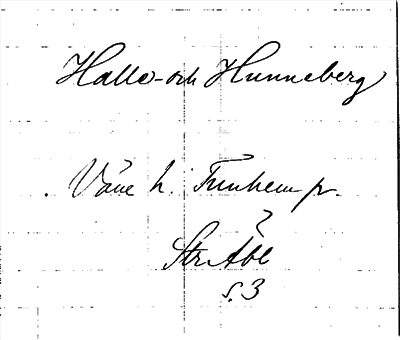 Halle- och Hunneberg
Väne h. Trunhem pr.
Str Åbl
s. 3